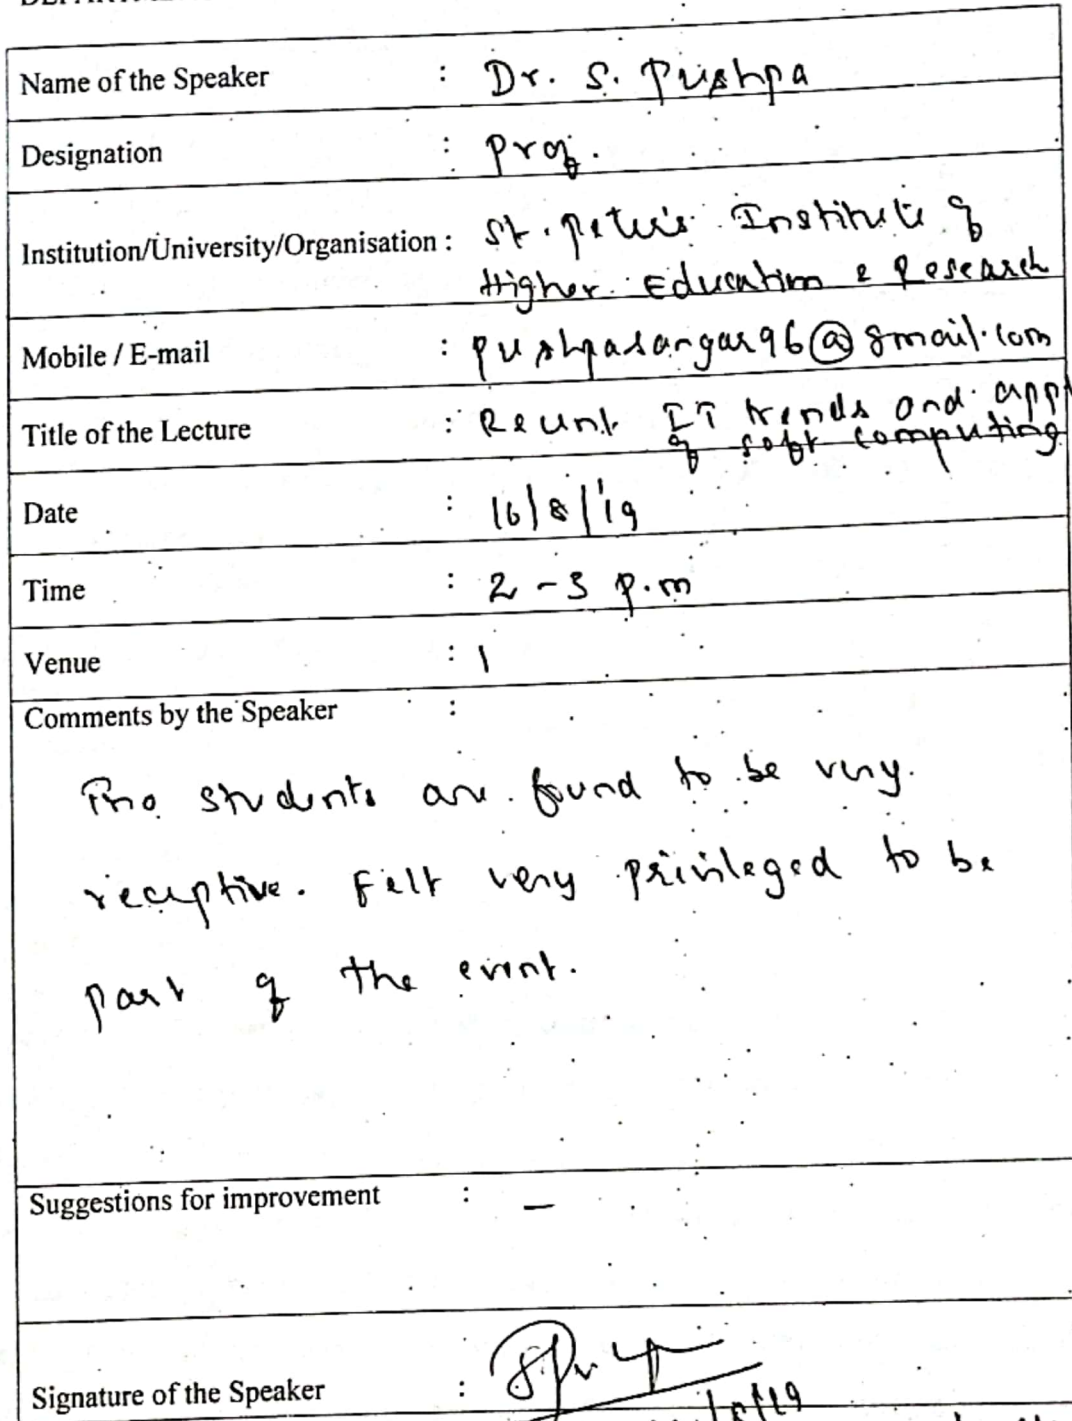 Name of the Speaker : Dr. S. Pushpa
Designation : Prof.
Institution/University/Organisation : St. Peter's Institute of
Higher Education & Research
Mobile / E-mail : pushpasangar96@gmail.com
Title of the Lecture : Recent IT trends and appl
of soft computing
Date : 16/8/19
Time : 2 - 3 p.m
Venue : 1
Comments by the Speaker :
The students are found to be very
receptive. Felt very privileged to be
part of the event.
Suggestions for improvement : –
Signature of the Speaker :